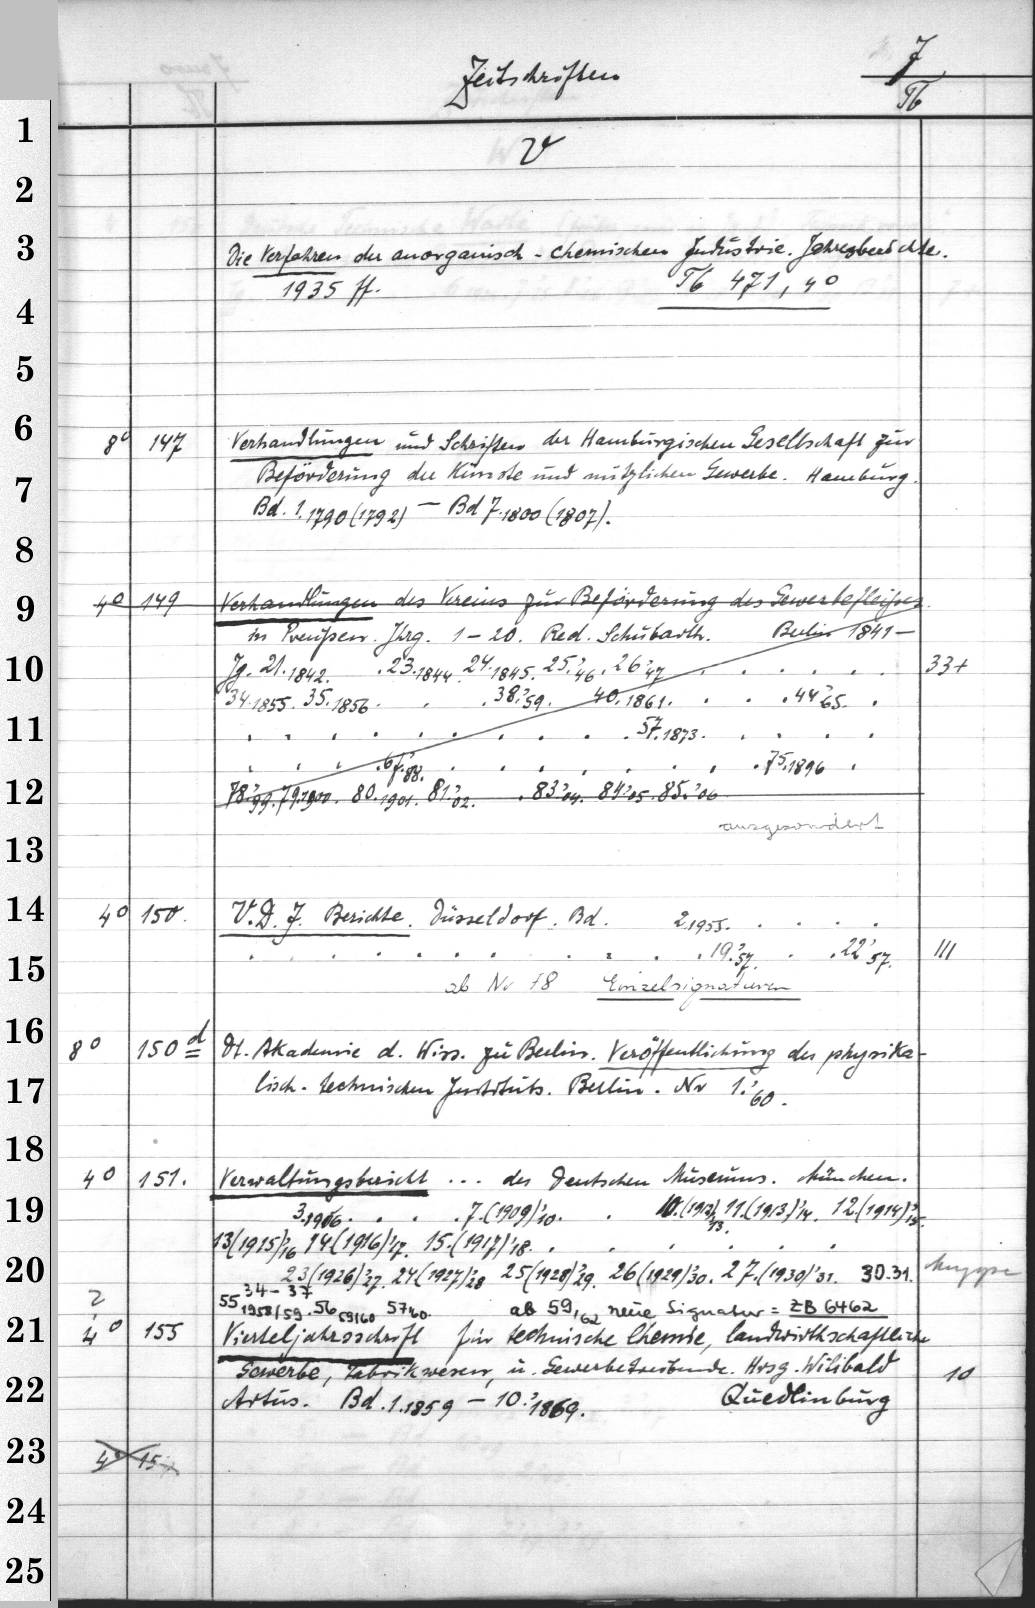 Zeitschriften
7
Tb
V
Die Verfahren der anorganisch-chemischen Industrie. Jahresberichte.
1935 ff. Tb 471, 4°
8° 147 Verhandlungen und Schriften der Hamburgischen Gesellschaft zur
Beförderung der Künste und nützlichen Gewerbe. Hamburg.
Bd. 1.1790(1792) – Bd 7.1800(1807).
4° 149 Verhandlungen des Vereins zur Beförderung des Gewerbefleißes
in Preußen. Jhrg. 1-20. Red. Schubarth. Berlin 1841-
Jg. 21.1842. .23.1844. 24.1845. 25.'46. 26.'47 . . . . . 33+
34.1855. 35.1856. . . .38.'59. 40.1861. . . .44.'65. .
. . . . . . . . . .57.1873. . . . .
. . . .67.'88. . . . . . . . .75.1896 .
78.'99. 79.1900. 80.1901. 81.'02. .83.'04. 84.'05. 85.'06
ausgesondert
4° 150. V.D.J. Berichte. Düsseldorf. Bd. 2.1955. . . . .
. . . . . . . . . . .19.'57. . .22.'57. III
ab Nr 18 Einzelsignaturen
8° 150 d Dt. Akademie d. Wiss. zu Berlin. Veröffentlichung des physika-
lisch-technischen Instituts. Berlin. Nr 1.'60.
4° 151. Verwaltungsbericht ... des Deutschen Museums. München.
3.1906. . . .7.(1909)'10. . 10.(1912)'13. 11.(1913)'14. 12.(1914)'15.
13(1915)'16 14.(1916)'17. 15.(1917)'18. . . . . . .
23(1926)'27. 24(1927)'28 25(1928)'29. 26(1929)'30. 27.(1930)'31. 30.31.
34-37
55 1958/59. 56 59/60 57 60. ab 59,'62 neue Signatur = ZB 6462
2
4° 155 Vierteljahrsschrift für technische Chemie, landwirthschaftliche
Gewerbe, Fabrikwesen, u. Gewerbetreibende. Hrsg. Wilibald 10
Artus. Bd. 1.1859 – 10.'1869. Quedlinburg
4° 15
1
2
3
4
5
6
7
8
9
10
11
12
13
14
15
16
17
18
19
20
21
22
23
24
25